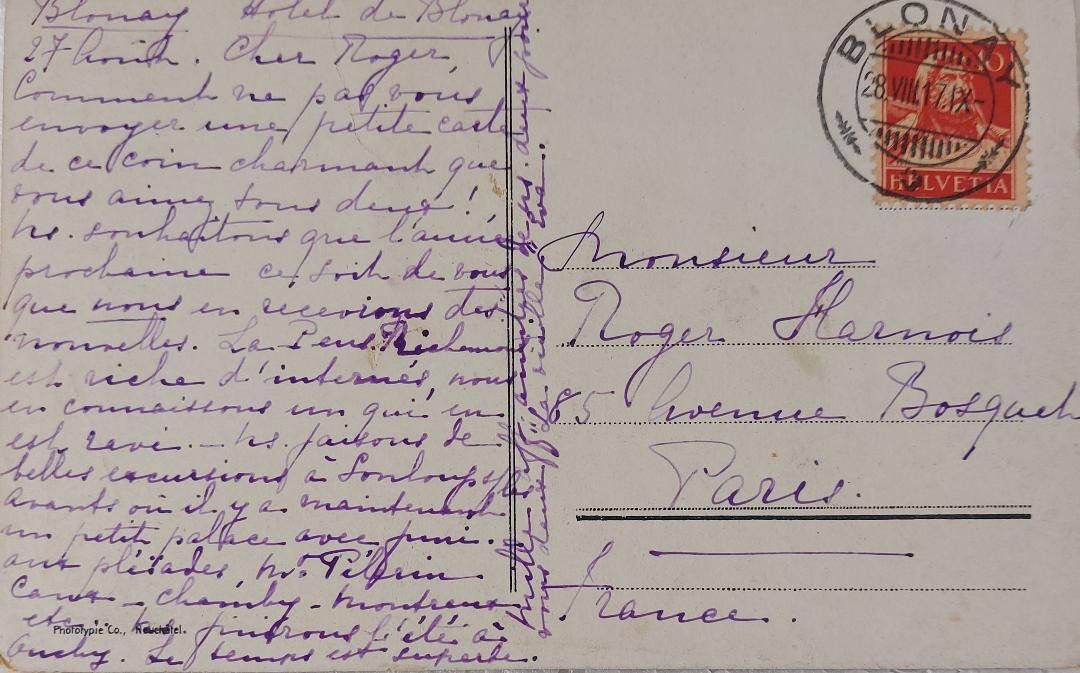 Blonay Hotel de Blonay
27 Août. Cher Roger,
Comment ne pas vous
envoyer une petite carte
de ce coin charmant que
vous aimez tous deux!
ns. souhaitons que l'année
prochaine ce soit de vous
que nous en recevions des
nouvelles. La Pens. Richemont
est riche d'internés, nous
en connaissons un qui en
est ravi. - ns. faisons de
belles excursions à Sonloup s/les
avants où il y a maintenant
un petit palace avec funi.
aux pléiades, Mt. Pélerin
Caux - Chamby - Montreux
etc... finirons l'été à
Ouchy. Le temps est superbe.
Phototypie Co., Neuchâtel.
Mille amitiés de ns. deux pour
vous deux
BLONAY
28.VIII.17.IX-
10
HELVETIA
Monsieur
Roger Harnois
85 Avenue Bosquet
Paris.
France.